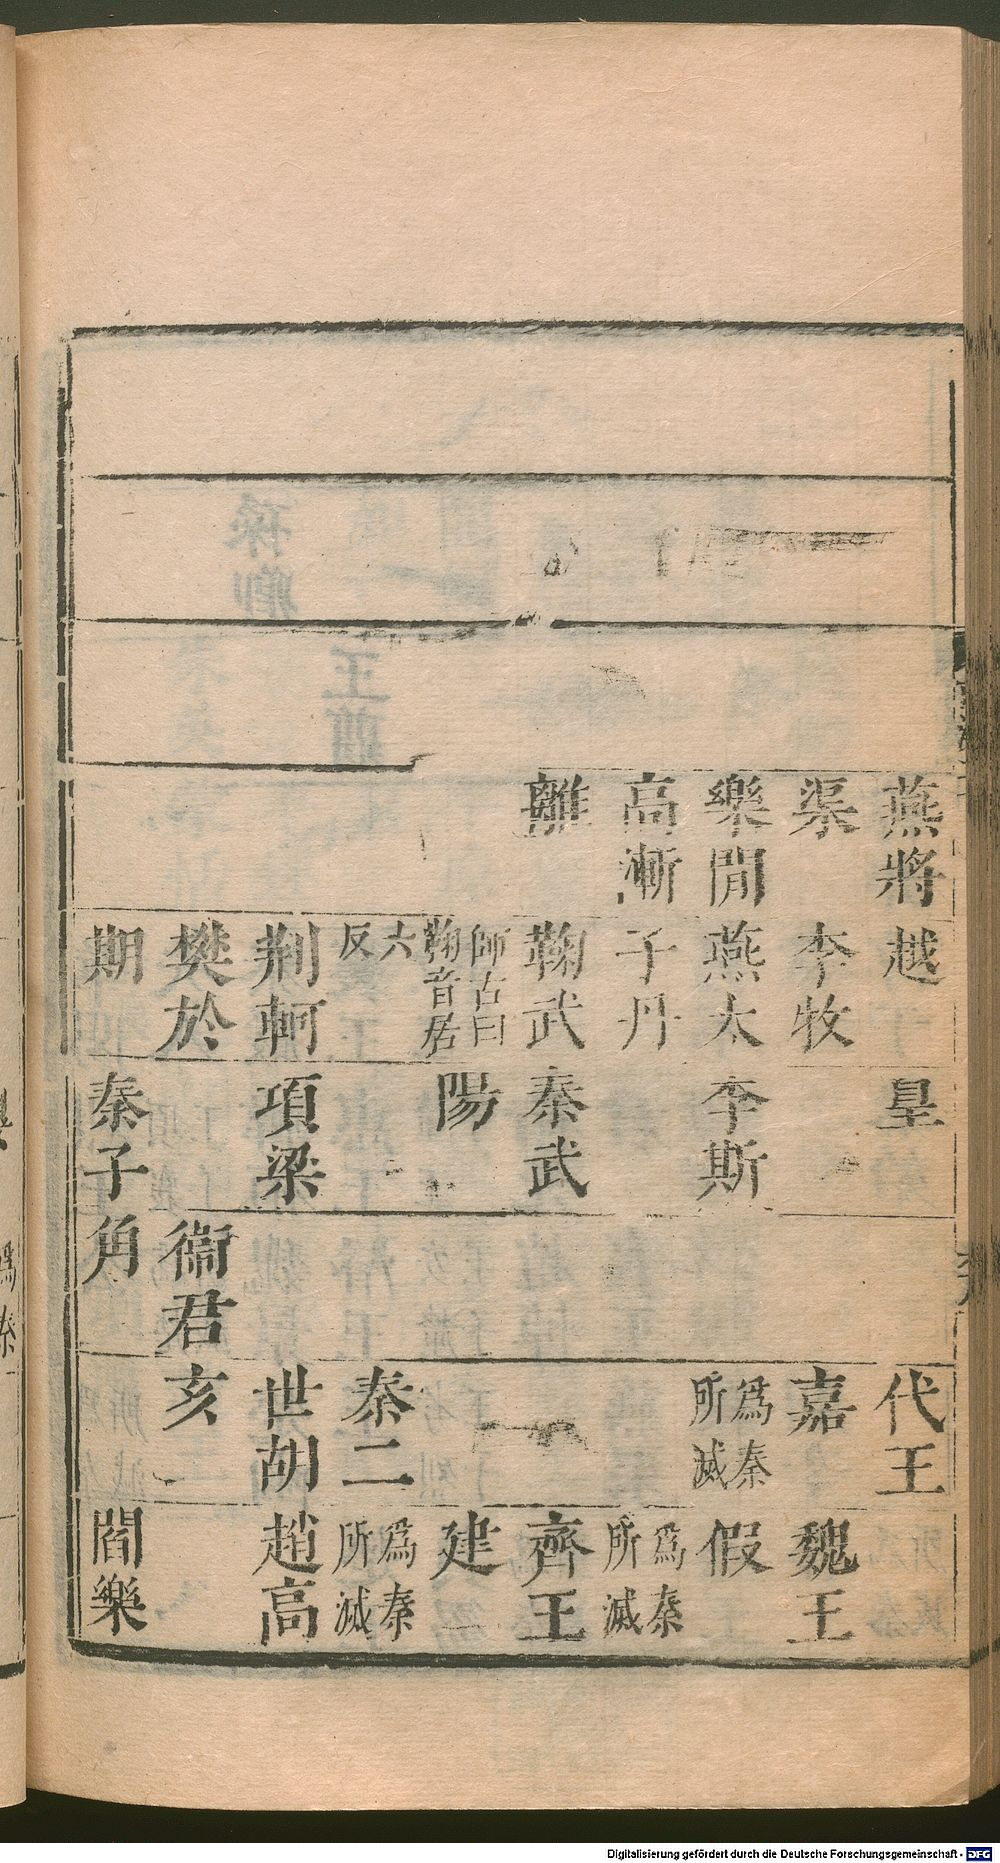 燕將
渠
樂閒
高漸
離
越
李牧
燕太
子丹
鞠武
師古曰
鞠音居
六
反
荆軻
樊於
期
皇
李斯
秦武
陽
項梁
秦子
衞君
角
代王
嘉
為秦
所滅
秦二
世胡
亥
魏王
假
為秦
所滅
齊王
建
為秦
所滅
趙高
閻樂
Digitalisierung gefördert durch die Deutsche Forschungsgemeinschaft - DFG